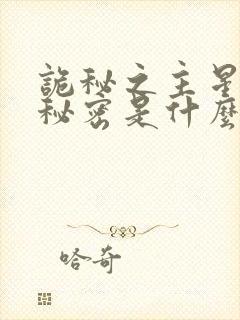 詭秘之主星
秘密是什麼
哈奇